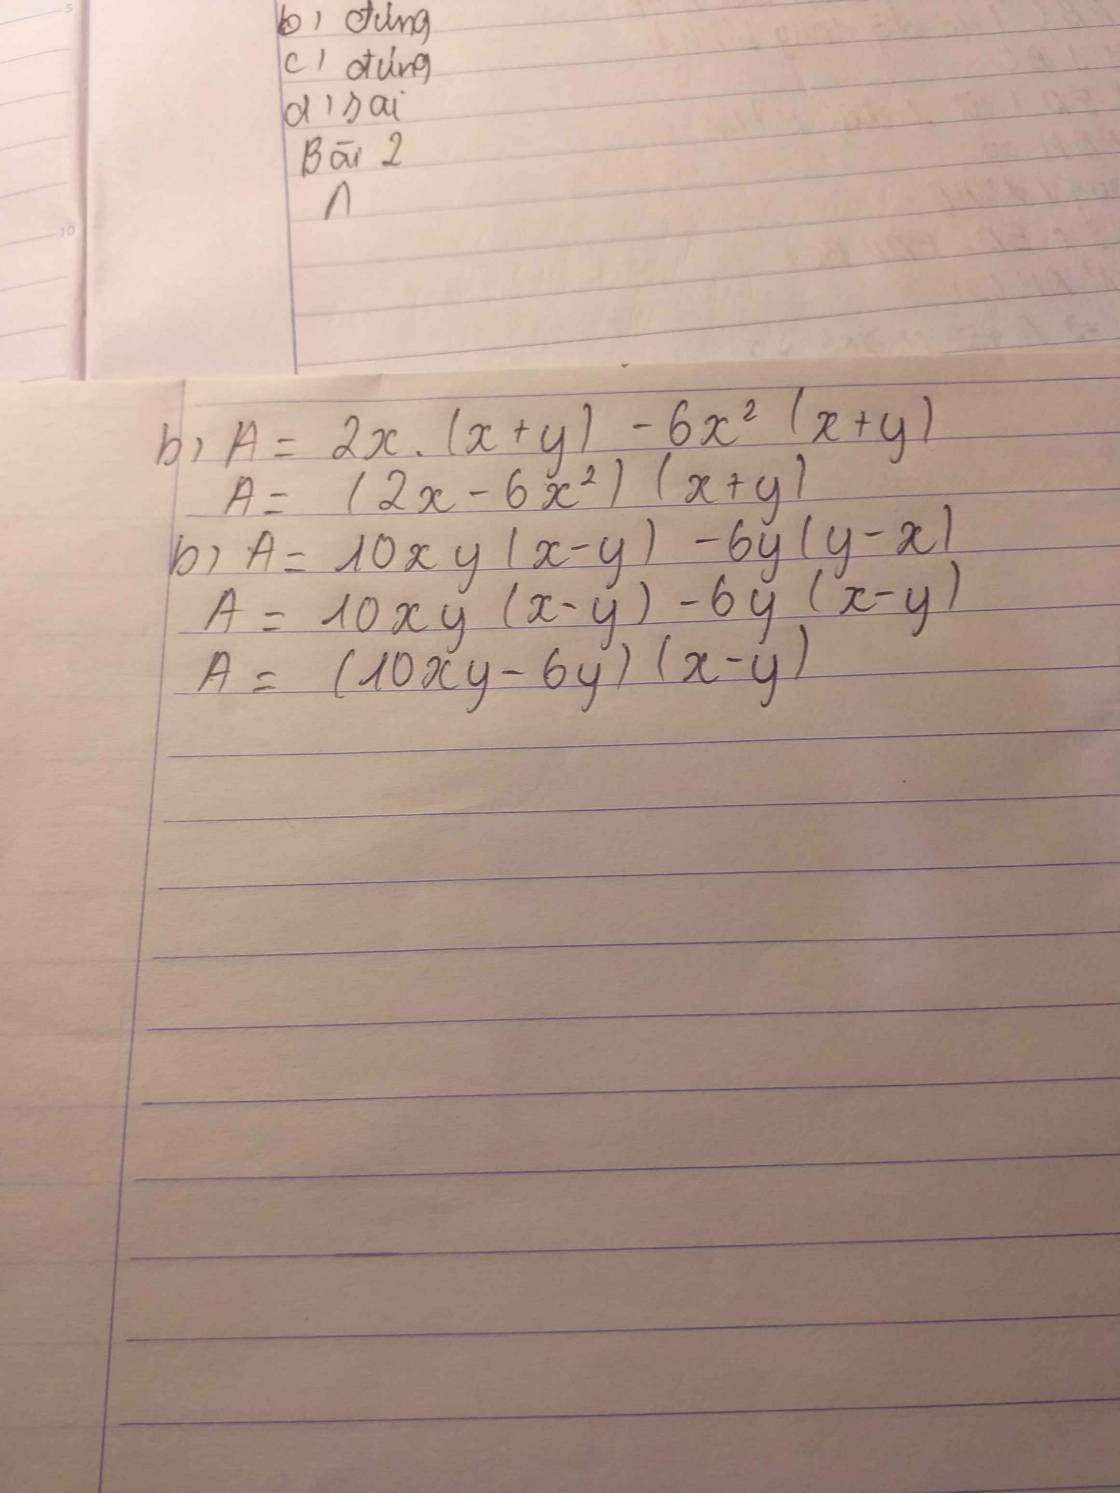 b) đúng
c) đúng
d) sai
Bài 2
b) A = 2x. (x+y) - 6x² (x+y)
A = (2x - 6x²) (x+y)
b) A = 10xy (x-y) - 6y (y-x)
A = 10xy (x-y) - 6y (x-y)
A = (10xy - 6y) (x-y)